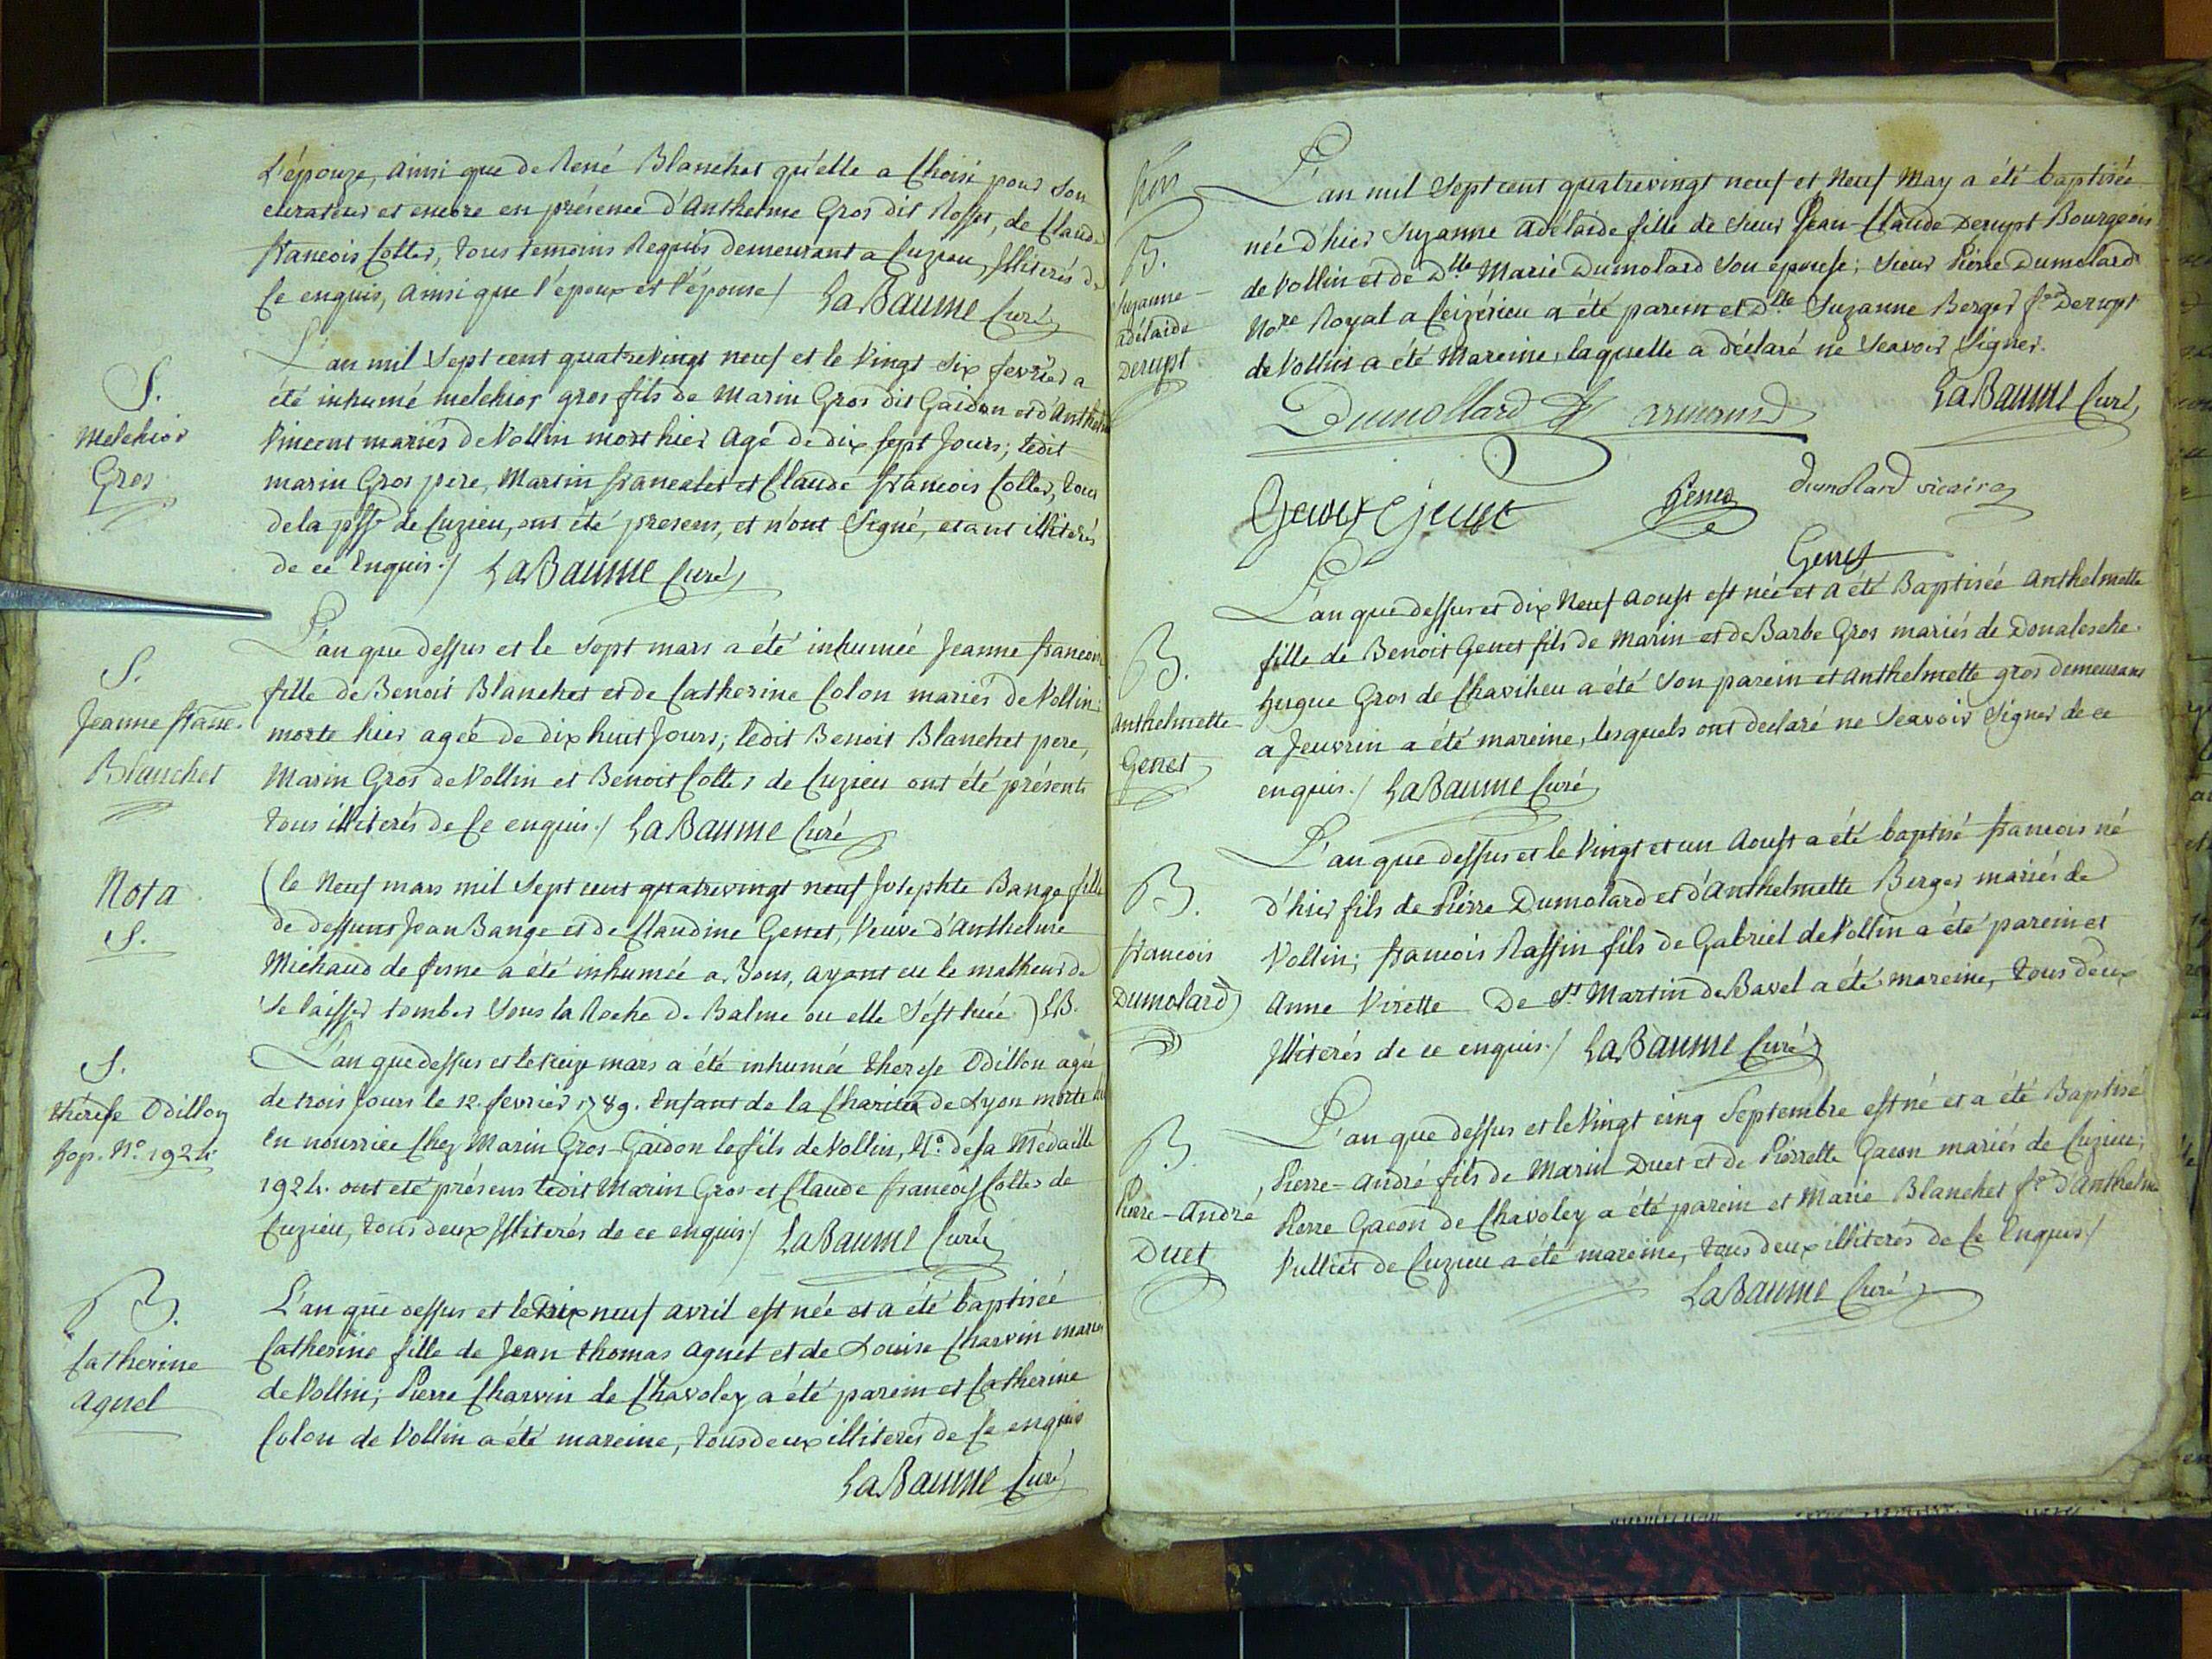 L'épouze, ainsi que de René Blanchet qu'elle a Choisi pour Son
curateur et encore en présence d'Anthelme Gros dit Rosset, de Claude
francois Collet, tous temoins Requis demeurant a Cuzieu, Illiterés de
Ce enquis, ainsi que l'époux et l'épouse / LaBaume Curé
S.
Melchior
Gros
L'an mil Sept cent quatrevingt neuf et le Vingt Six fevrier a
été inhumé melchior gros fils de Marin Gros dit Gaidon et d'Anthelm
Vincent mariés de Vollin mort hier Agé de dix Sept Jours; ledit
marin Gros pere, Martin francalet et Claude francois Collet, tous
de la psse de Cuzieu, ont été presens, et n'ont Signé, etant illiterés
de ce Enquis ./ LaBaume Curé
S.
Jeanne franc.
Blanchet
L'an que dessus et le Sept mars a été inhumée Jeanne francois
fille de Benoit Blanchet et de Catherine Colon mariés de Vollin;
morte hier agée de dix huit Jours; ledit Benoit Blanchet pere,
Marin Gros de Vollin et Benoit Collet de Cuzieu ont été présents
tous illiterés de Ce enquis ./ LaBaume Curé
Nota
S.
(le Neuf mars mil Sept cent quatrevingt neuf Josephte Bange fille
de deffunt Jean Bange et de Claudine Genet, Veuve d'Anthelme
Michaud de a été inhumée a Bons, ayant eu le malheur de
Se laisser tomber Sous la Roche de Balme ou elle S'est tuée) LB.
S.
thérese Odillon
hop. N.o 1924
L'an que dessus et le treize mars a été inhumée therese Odillon agée
de trois Jours le 12. fevrier 1789. Enfant de la Charité de Lyon morte
En nourrice Chez Marin Gros-Gaidon le fils de Vollin, N.o de Sa Médaille
1924. ont eté présens ledit Marin Gros et Claude francois Collet de
Cuzieu, tous deux Illiterés de ce enquis ./ LaBaume Curé
B.
Catherine
aguel
L'an que dessus et le Dix neuf avril est née et a été baptisée
Catherine fille de Jean thomas aguet et de Louise Charvin mariés
de Vollin; Pierre Charvin de Chavoley a été parein et Catherine
Colon de Vollin a été mareine, tous deux illiterés de Ce enquis
LaBaume Curé
B.
Suzanne
adélaide
Derupt
L'an mil Sept cent quatrevingt neuf et Neuf May a été baptisée
née d'hier Suzanne Adélaide fille de Sieur Jean-Claude Derupt Bourgeois
de Vollin et de Dlle Marie Dumolard Son épouse; Sieur Pierre Dumolard
Nore Royal a Ceizérieu a été parein et Dlle Suzanne Berger fe Derupt
de Vollin a été Mareine, laquelle a déclaré ne Scavoir Signer.
LaBaume Curé
Dumollard armand
Dumolard vicaire
Genet
Genet
B.
Anthelmette
Genet
L'an que dessus et dix Neuf Aoust est née et a été Baptisée Anthelmette
fille de Benoit Genet fils de Marin et de Barbe Gros mariés de
hugue Gros de Chavilieu a été Son parein et Anthelmette gros demeurant
a Jeuvrin a été mareine, lesquels ont declaré ne Scavoir Signer de ce
enquis ./ LaBaume Curé
B.
francois
Dumolard
L'an que dessus et le Vingt et un Aoust a été baptisé francois né
d'hier fils de Pierre Dumolard et d'Anthelmette Berger mariés de
Vollin; francois Raffin fils de Gabriel de Vollin a été parein et
Anne Virette De St Martin de Bavel a été mareine, tous deux
Illiterés de ce enquis ./ LaBaume Curé
B.
Pierre-André
Duet
L'an que dessus et le Vingt cinq Septembre est né et a été Baptisé
Pierre-andré fils de Marin Duet et de Pierrette Gacon mariés de Cuzieu;
Pierre Gacon de Chavoley a été parein et Marie Blanchet fe d'Anthelme
Vulliet de Cuzieu a été mareine, tous deux illiterés de Ce Enquis /
LaBaume Curé